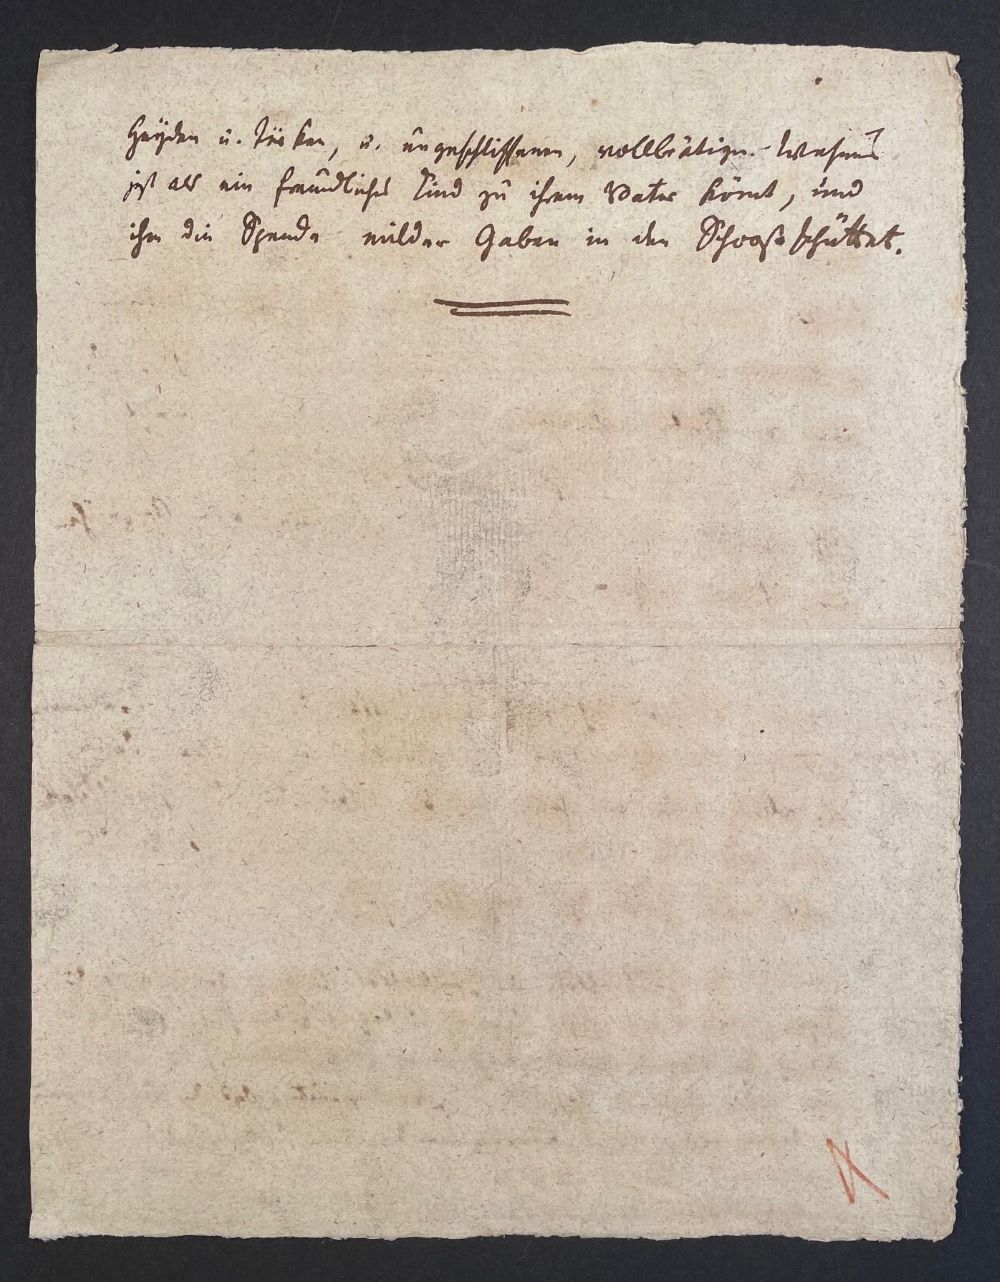 Heyden u. Türken, u. ungeschliffenen, Wesens
als ein freundliches Kind zu ihrem Vater kömt, und
ihm die Spende milder Gaben in den Schooß schüttet.